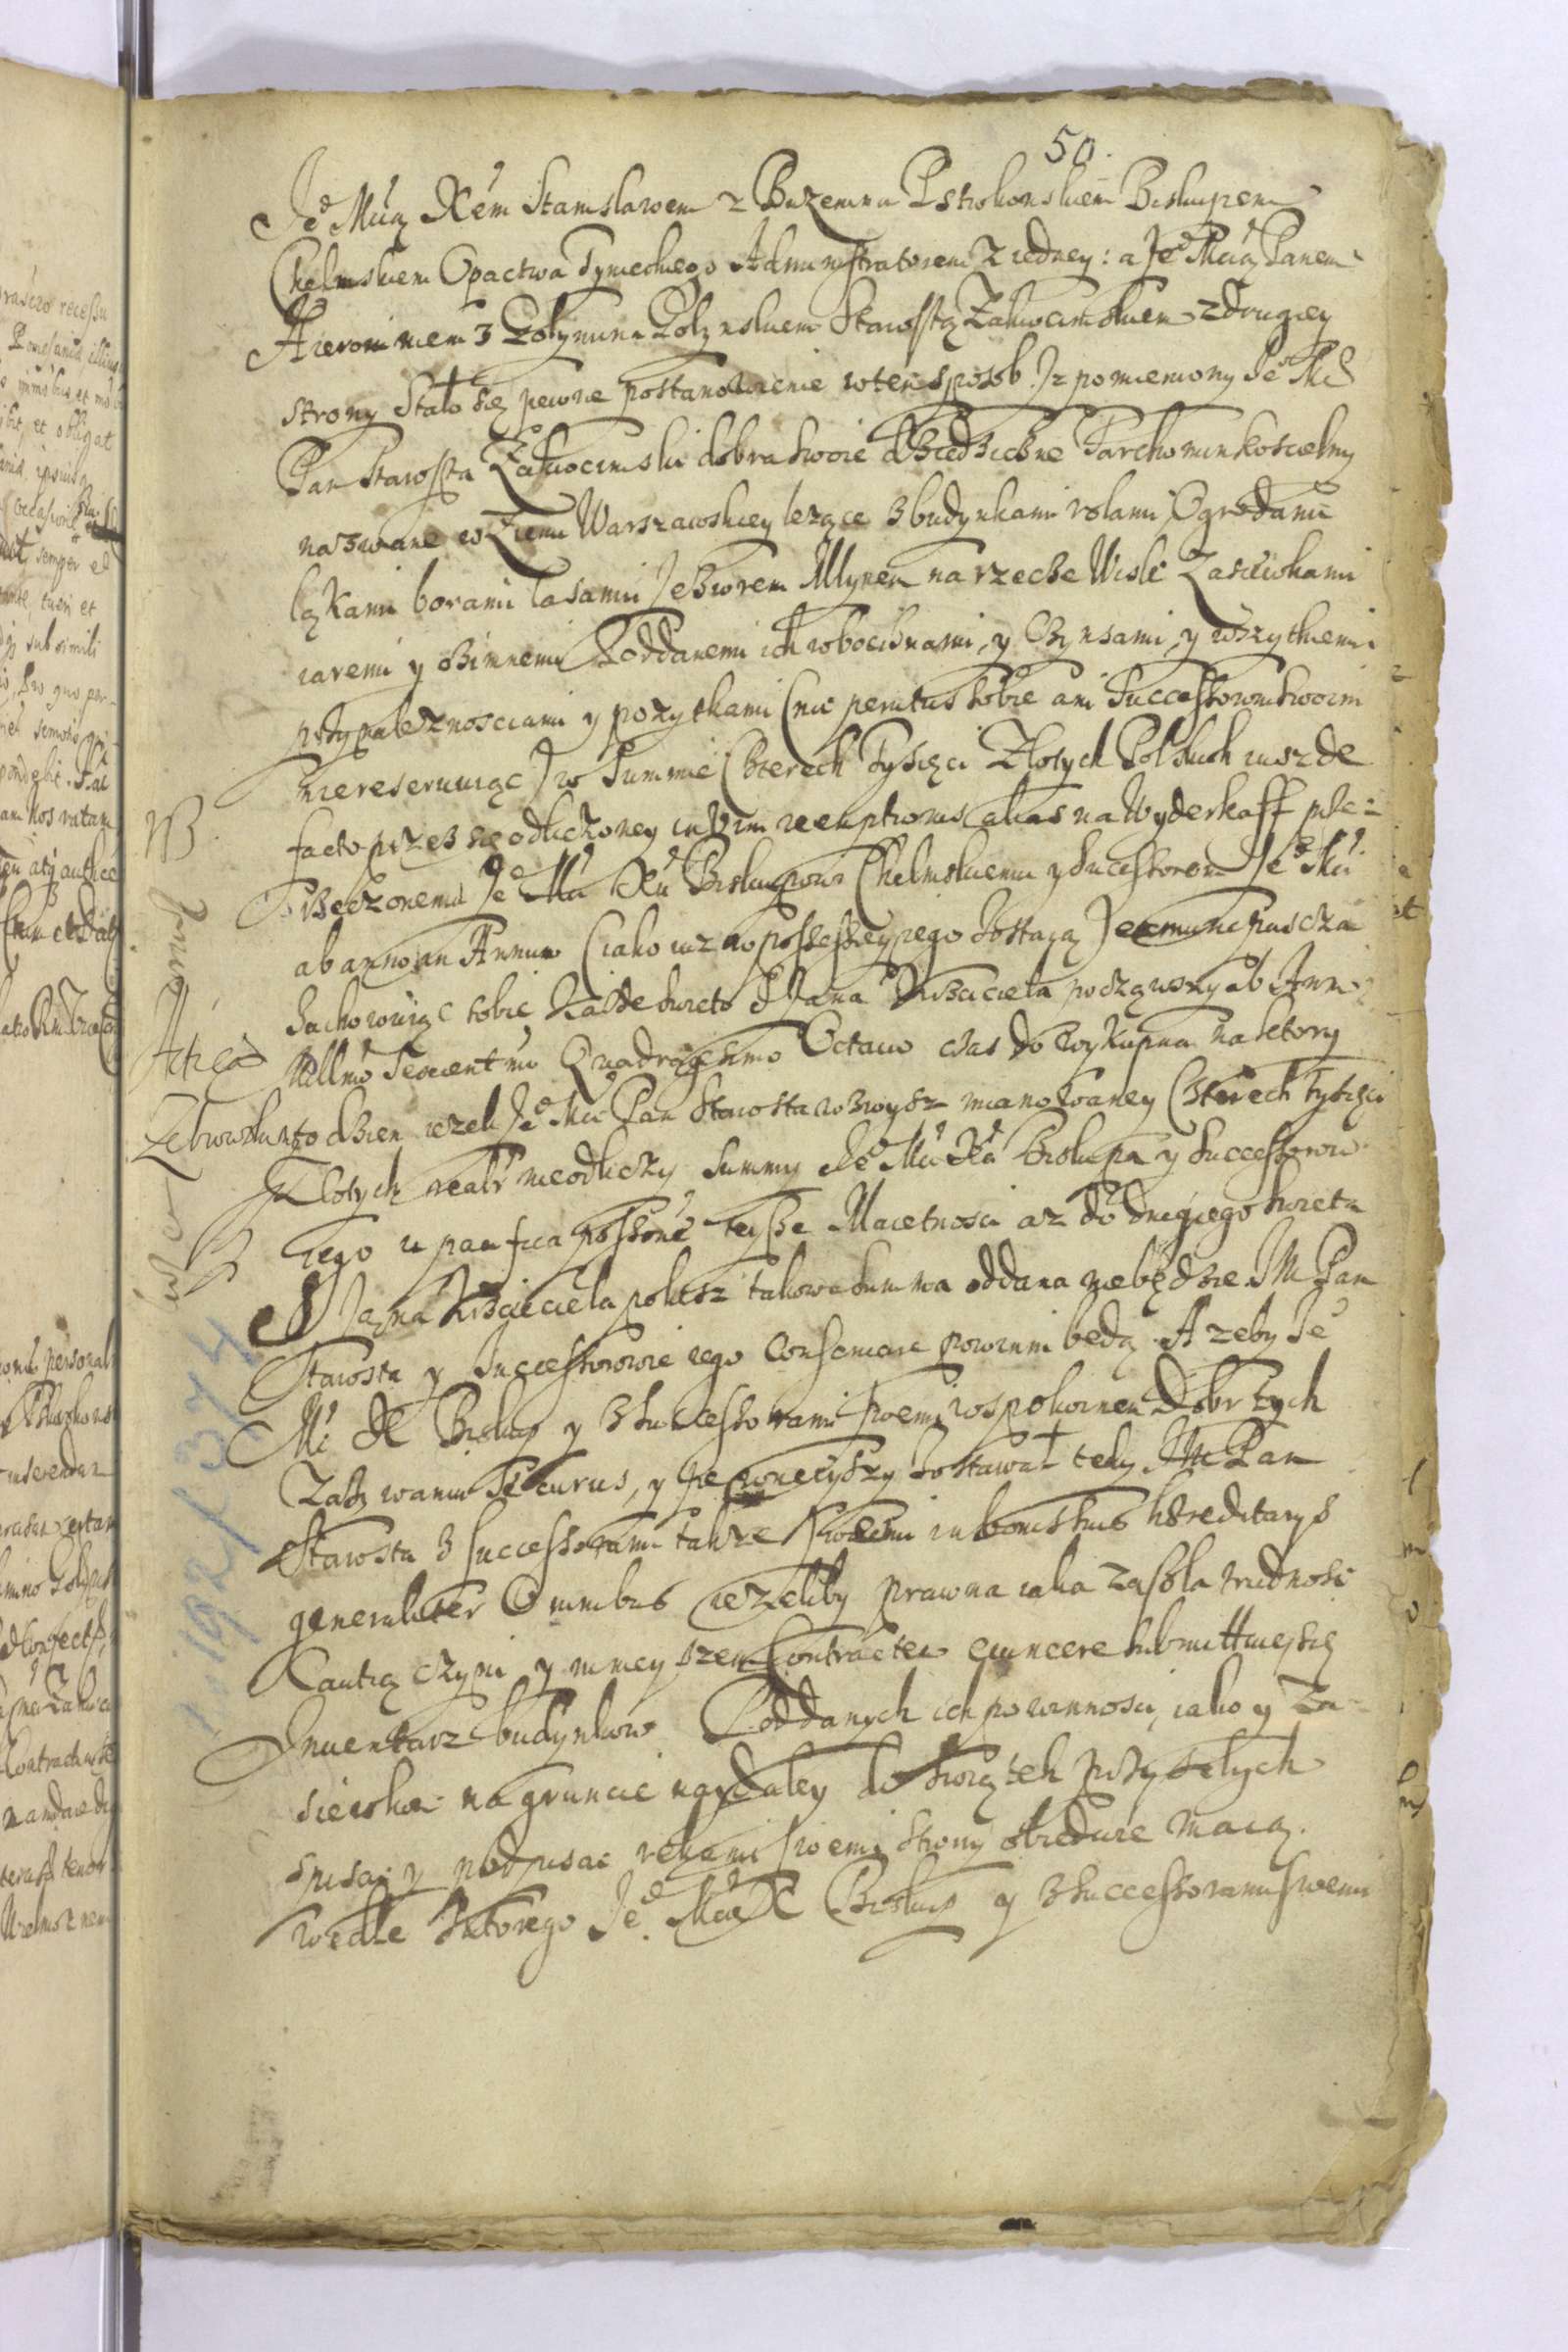 50.
Je Mcią Xem Stanisławem z Buzenina Pstrokonskiem Biskupem
Chelmskiem Opactwa Tynieckiego Administratorem z iedney: a Je Mcią Panem
Hieronimem z Gołymina Golynskiem Starostą Zakroczimskiem z drugiey
strony Stało się pewne postanowienie w ten sposob. Iz pomieniony Je Mc
Pan Starosta Zakrocimski dobra swoie dziedziczne Parchomin koscielny
nazwane w Ziemi Warszawskiey lezące z budynkami rolami Ogrodami
ląkami borami lasami Jeziorem Młynem na rzecze Wisle Zasiewkami
iaremi y ozimnemi Poddanemi ich robociznami, y Czynsami, y wszytkiemi
przynaleznosciami y pozytkami (nic penitus sobie ani Successorom swoim
niereseruuiąc) w Summie Czterech Tysięci Złotych Polskich iusz de
facto przez się odliczoney in vim reemptionis alias na Wyderkaff prze=
rzeczonemu Je Mci Xu Biskupowi Chelmskiemu y Successorom Je Mci
ab anno in Annum (iako iuz w possessyey iego zostaią) puscza
Zachowuiąc sobie Kazde swieto S Jana Krzciciela począwszy ab Anno
Millmo Sexcentmo Quadragesimo Octauo czas do wykupna na ktory
to dzien iezeli Je Mc Pan Starosta zwysz mianowaney Czterech Tysięci
Zlotych realr nieodliczy Summy Je Mci Xa Biskupa y Successorow
iego in pacifica possone teysze Maietnosci az do drugiego swieta
S Jana Krzciciela pokisz takowa Summa oddana nie będzie JM Pan
Starosta y Successorowie iego conseruare powinni bedą. A zeby Je
Mc X Biskup y z Successorami swemi w spokoinem Dobr tych
Zazywaniu Securus, y pewnieyszy zostawał tedy JM Pan
Starosta z Successorami takze swoiemi in bonis suis hereditarys
generaliter Omnibus iezeliby prawna iaka zaszla trudnosc
Cautią czyni y ninieyszem Contractem euincere submittuie się
Inuentarz budynkow Poddanych ich powinnosci, iako y Za-
siewkow na gruncie naydaley do swiątek przyszlych
spisac y podpisac rękami swemi strony obiedwie maią.
wedle ktorego Je Mc X Biskup y z Successorami swemi
NB
Actica
Zebrowski
1.192/374